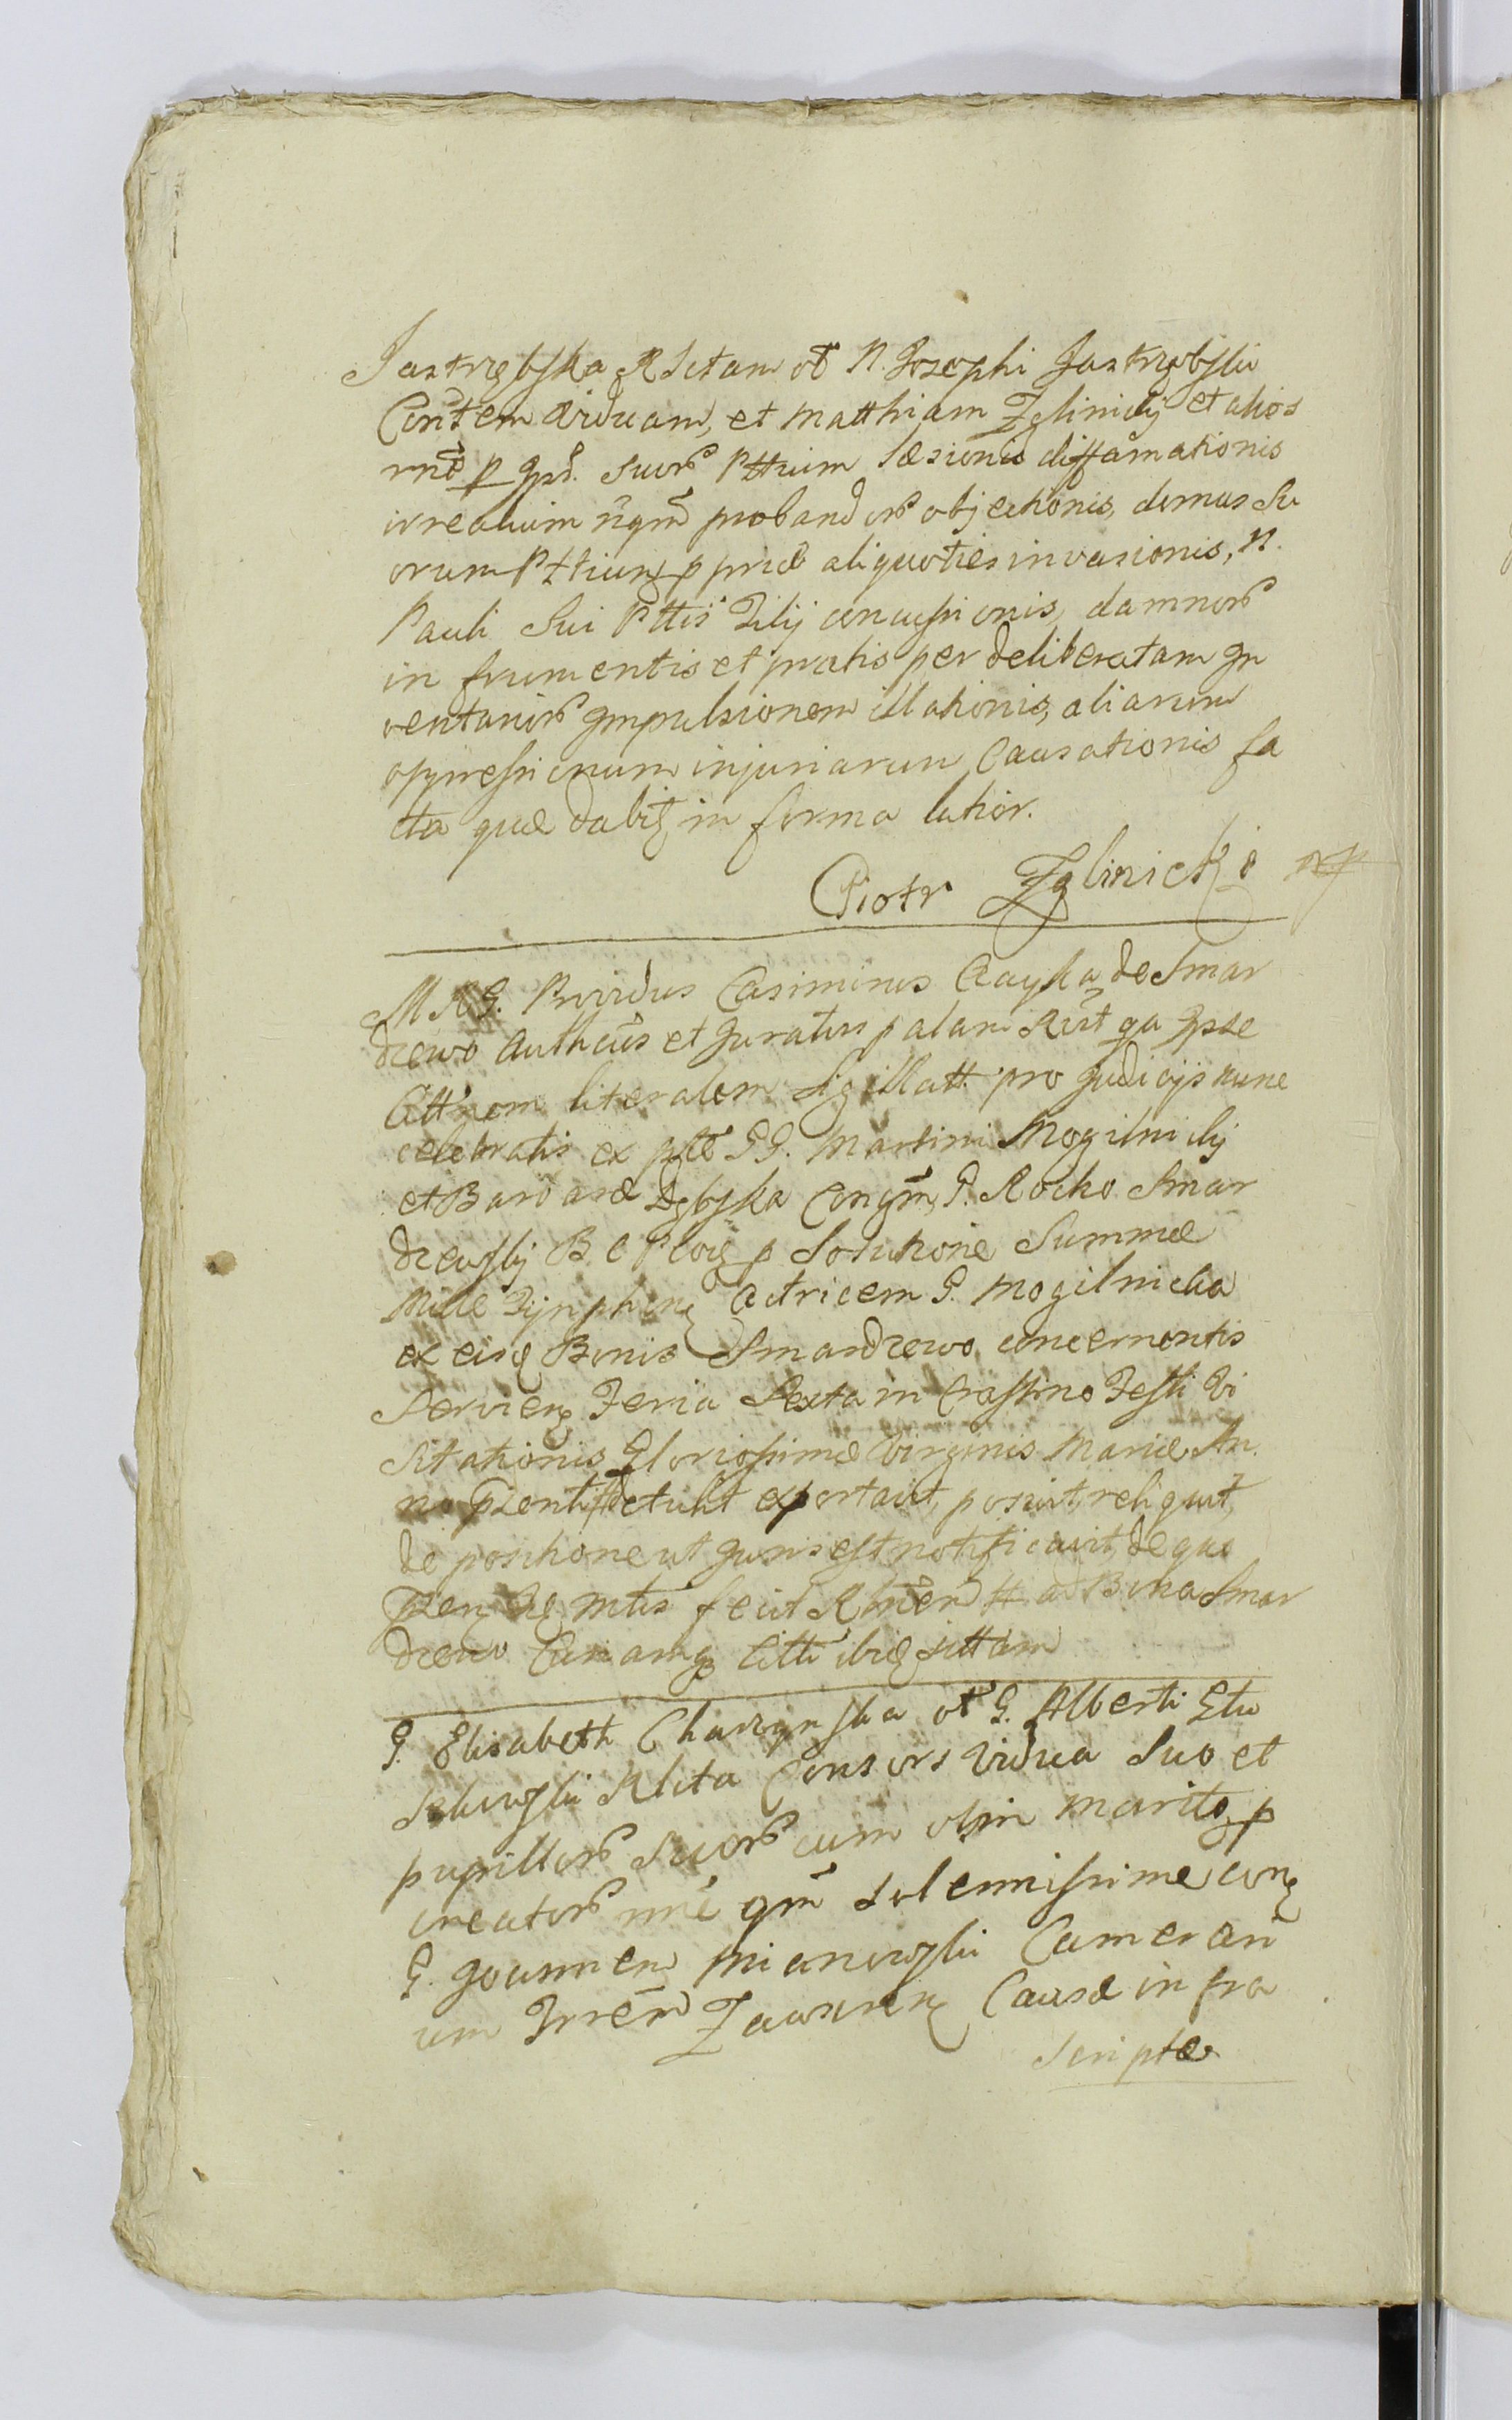 Jastrzębska Rlctam ol N. Josephi Jastrzębski
Contem viduam, et Matthiam Zglinicki et alios
rnē p Ips. suorᵇ Pttium læsionis diffamationis
irrealium nqm probandorᵇ objectionis, domus Su
orum Pttium p prid aliquoties invasionis, N.
Pauli Sui Pttis Filij concussionis, damnorᵇ
in frumentis et pratis per deliberatam In
ventariorᵇ Impulsionem illationis, aliarum
oppressionum injuriarum Causationis fa
cta quæ dabitʒ in forma latior.
Piotr Zglinicki mp
M R G. Providus Casimirus Czayka de Smar
drewo Authcus et Juratus palam Rcit qa Ipse
Cittnem literalem Sigillatt pro Judicijs nunc
celebratis ex pte GG. Martini Mogilnicki
et Barbaræ Dębska Congm, G. Rocho Smar
drewski B. C p Solutione Summæ
Mille Tynphonʒ Actricem G. Mogilnicka
ex eisʒ Bonis Smardrewo concernentis
Servienʒ Feria Sexta in Crastino Festi Vi
sitationis Gloriosissimæ Virginis Mariæ An.
no Pzenti detulit exportavit, posuit, reliquit,
de positione ut Juris est notificavit, de quo
Pzenʒ mtis fecit Rlnem ad Bona Smar
drewo Eandmʒ Citti ibiʒ sittam
G. Elisabeth Charzynska ol G. Alberti
Rlcta Consors Vidua Suo et
pupillorᵇ Suorᵇ cum olim marito p
creatorᵇ nnē qm solennissime conʒ
G. Joannem Mianowski Camerari
um Trrem Zawskrenʒ Causæ infra
scriptæ